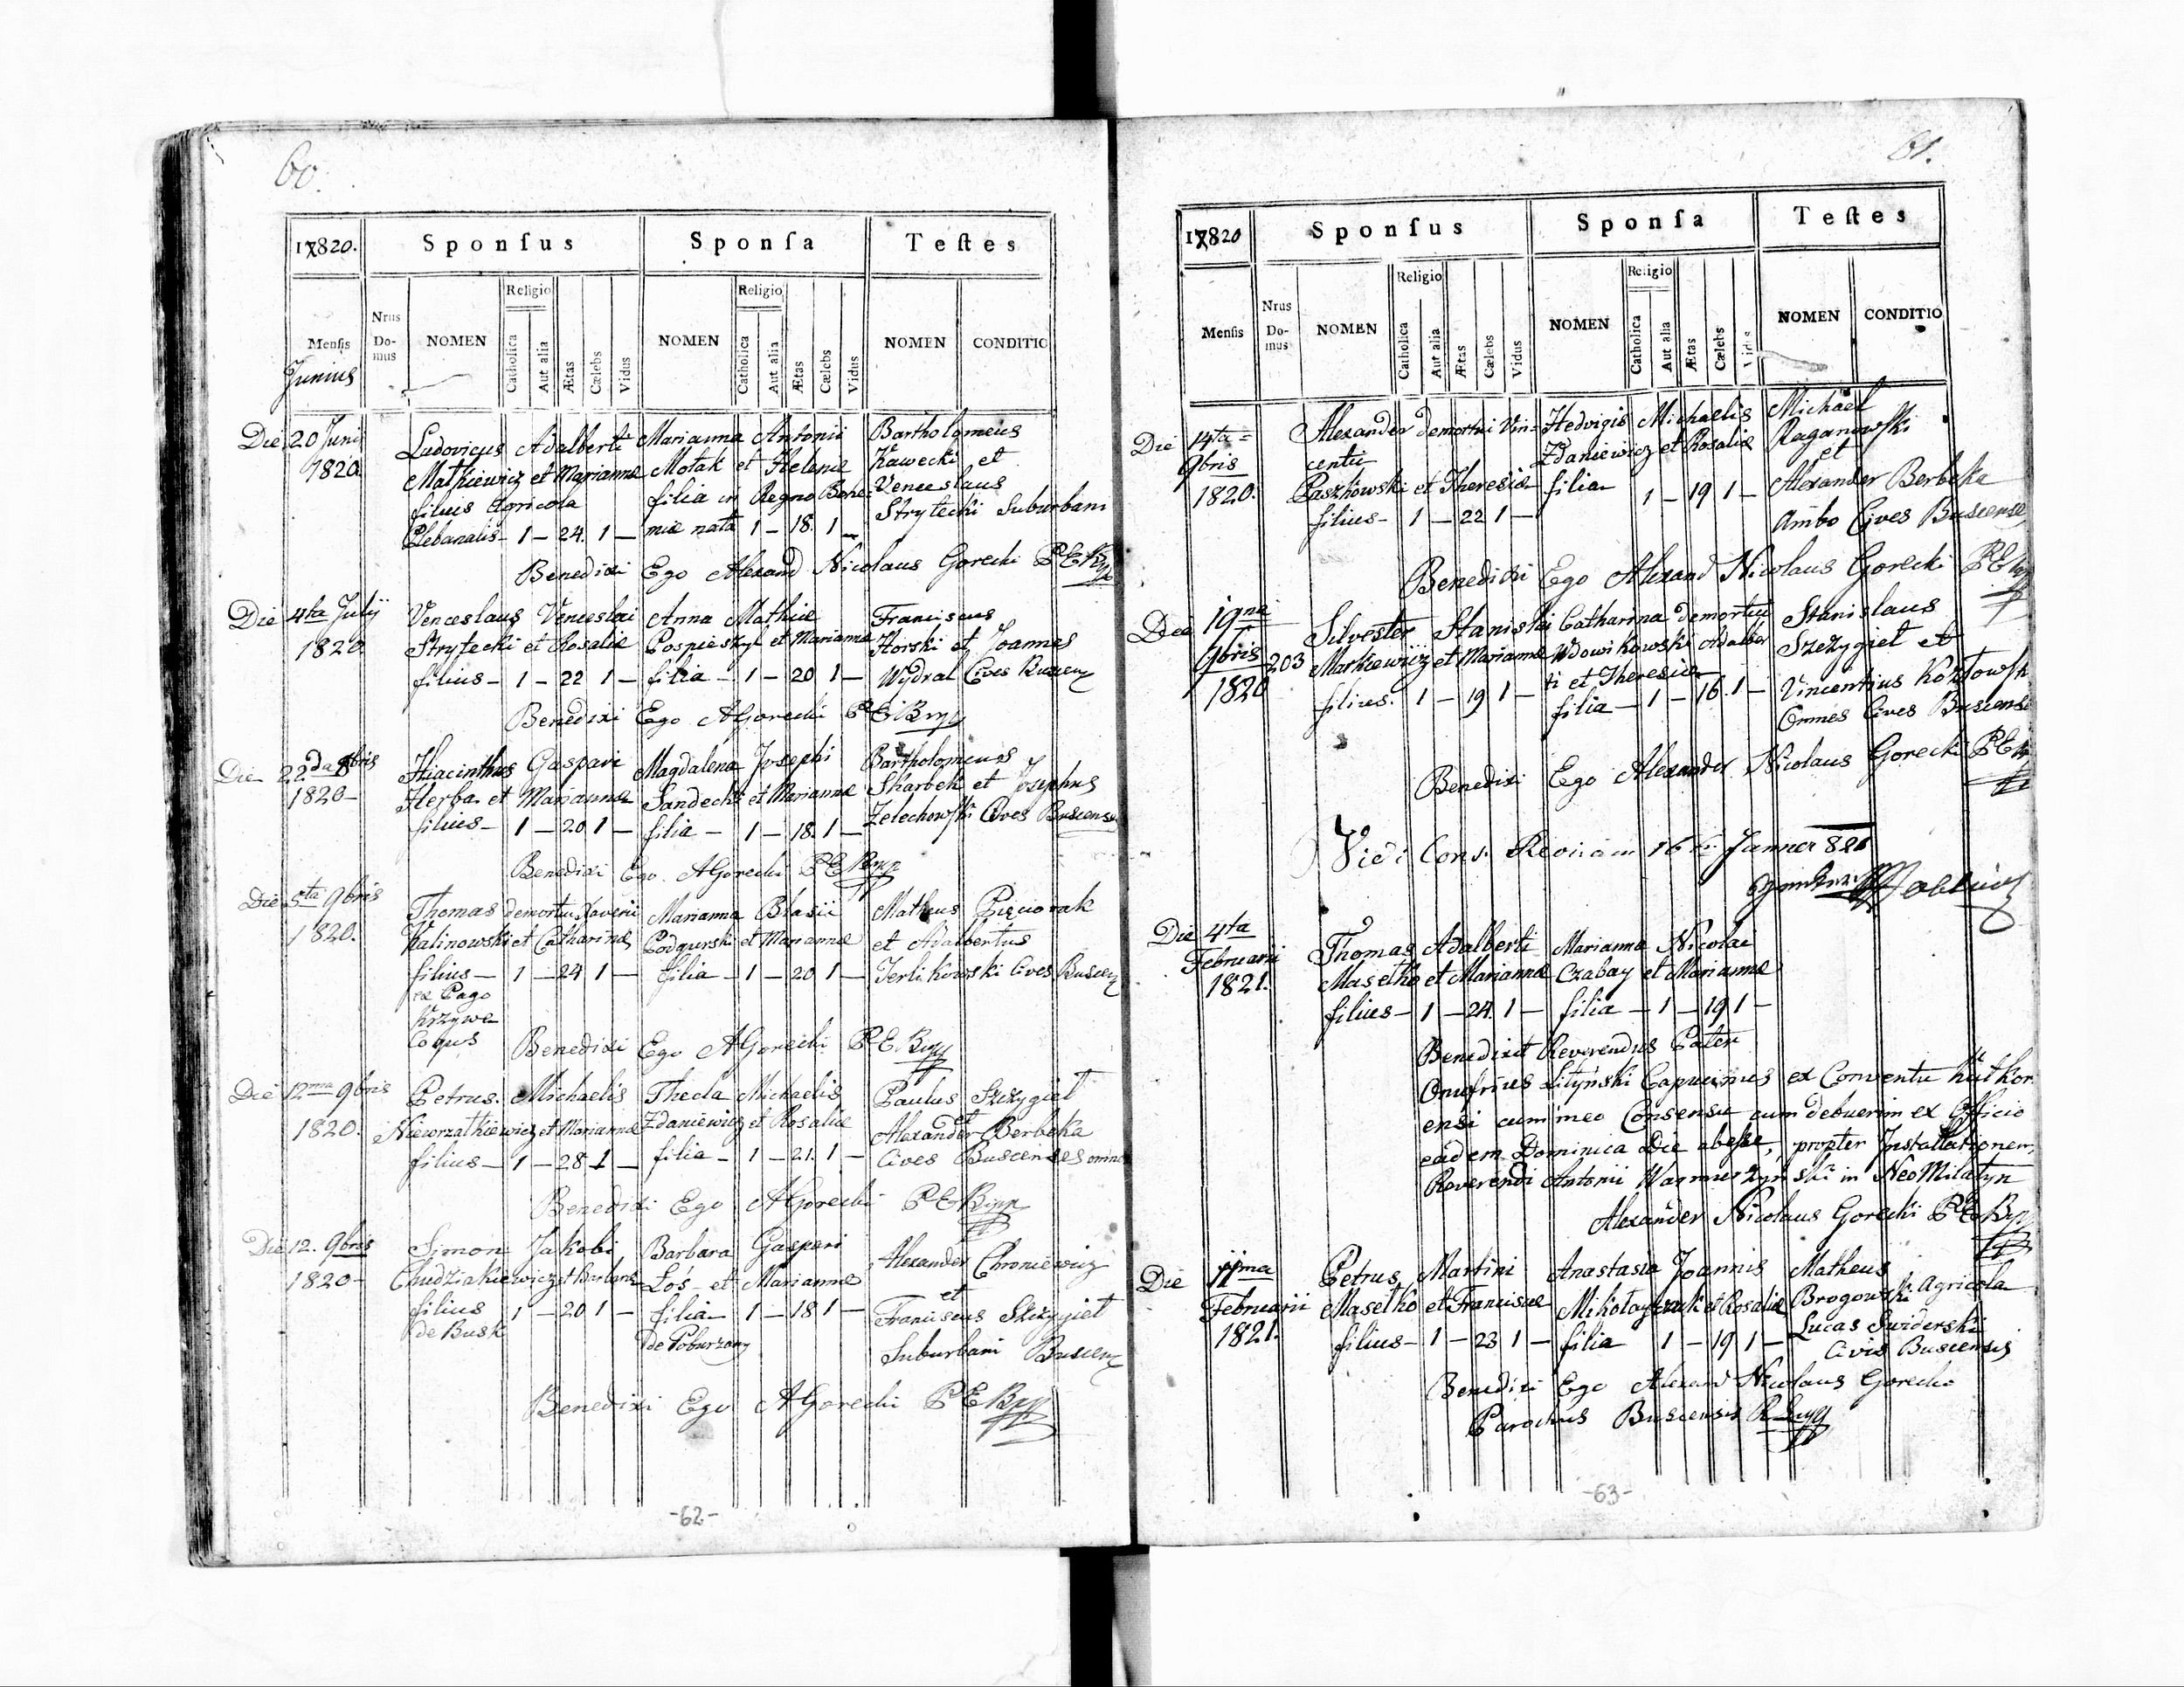 60.
17820.
Sponſus
Sponſa
Teſtes
Menſis
Nrus Do-mus
NOMEN
Religio
Catholica
Aut alia
Ætas
Cælebs
Vidus
NOMEN
Religio
Catholica
Aut alia
Ætas
Cælebs
Vidus
NOMEN
CONDITIO
Junius
Die 20 Junij Ludovicus Adalberti Marianna Antonii Bartholomeus
1820. Matkiewicz et Mariannæ Motak et Helenæ Kawecki et
filius Agricola filia in Regno Bohe- Venceslaus
Plebanalis - 1 - 24. 1 - miæ nata 1 - 18. 1 - Strytecki Suburbani
Benedixi Ego Alexand Nicolaus Gorecki
Die 4ta Julij Venceslaus Venceslai Anna Mathiæ Franciscus
1820. Strytecki et Rosaliæ Pospieszyl et Mariannæ Horski et Joannes
filius - 1 - 22 1 - filia - 1 - 20 1 - Wydral Cives
Benedixi Ego AGorecki
Die 22da 8bris Hiacinthus Gaspari Magdalena Josephi Bartholomeus
1820 - Herba et Mariannæ Sandecki et Mariannæ Skarbek et Josephus
filius - 1 - 20 1 - filia - 1 - 18. 1 - Zelechowski Cives Buscenses
Benedixi Ego AGorecki
Die 5ta 9bris Thomas demortui Xaverii Marianna Blasii Matheus Pięciorak
1820. Kalinowski et Catharinæ Podgurski et Mariannæ et Adalbertus
filius - 1 - 24 1 - filia - 1 - 20 1 - Jerlikowski Cives
ex Pago
Krzywe
Coquus
Benedixi Ego AGorecki
Die 12ma 9bris Petrus Michaelis Thecla Michaelis Paulus Szczygieł
1820. Niewrzatkiewicz et Mariannæ Zdaniewicz et Rosaliæ et Alexander Berbeka
filius - 1 - 28 1 - filia - 1 - 21. 1 - Cives Buscenses
Benedixi Ego AGorecki
Die 12. 9bris Simon Jakobi Barbara Gaspari Alexander Chroniewicz
1820 - Chudziakiewicz et Barbaræ Łoś et Mariannæ et
filius 1 - 20 1 - filia 1 - 18 1 - Franciscus Szczygieł
de Busk de Poburzany Suburbani
Benedixi Ego AGorecki
-62-
61.
17820
Sponſus
Sponſa
Teſtes
Menſis
Nrus Do-mus
NOMEN
Religio
Catholica
Aut alia
Ætas
Cælebs
Vidus
NOMEN
Religio
Catholica
Aut alia
Ætas
Cælebs
NOMEN
CONDITIO
Die 14ta Alexander demortui Vin- Hedvigis Michaelis Michael
9bris centii Zdaniewicz et Rosaliæ Raganowski
1820. Paszkowski et Theresiæ filia 1 - 19 1 - et Alexander Berbeka
filius - 1 - 22 1 - Ambo Cives Buscenses
Benedixi Ego Alexand Nicolaus Gorecki
Die 19na Silvester Stanislai Catharina demortui Stanislaus
9bris 203 Markiewicz et Mariannæ Wdowikowski Adalber Szczygieł et
1820 filius. 1 - 19 1 - ti et Theresiæ Vincentius Kozłowski
filia - 1 - 16. 1 - Omnes Cives
Benedixi Ego Alexander Nicolaus Gorecki
Vidi
Die 4ta Thomas Adalberti Marianna Nicolai
Februarii Masełko et Mariannæ Czabay et Mariannæ
1821. filius - 1 - 24. 1 - filia - 1 - 19 1 -
Benedixit Reverendus Pater
Onufrius Lityński Capucinus ex Conventu
ensi cum meo Consensu cum debuerim ex Officio
eadem Dominica Die abesse, propter Installationem
Reverendi Antonii in Neo Milatyn
Alexander Nicolaus Gorecki
Die 11ma Petrus Martini Anastasia Joannis Matheus
Februarii Masełko et Franciscæ Mikołayczuk et Rosaliæ Brogowski Agricola
1821. filius - 1 - 23 1 - filia 1 - 19 1 - Lucas Swiderski
Civis Buscensis
Benedixi Ego Alexand Nicolaus Gorecki
Parochus Buscensis
-63-